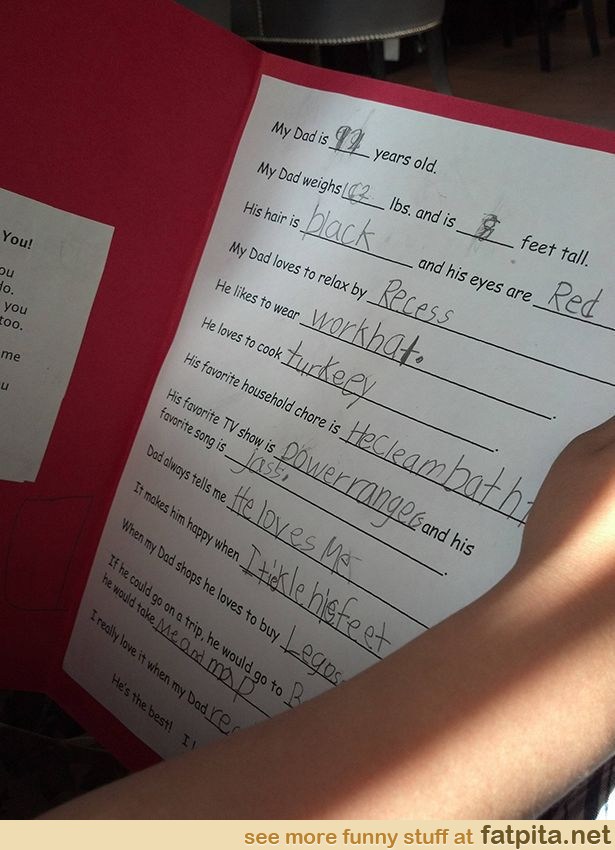 You!
ou
do.
you
too.
me
u
My Dad is years old.
My Dad weighs lbs. and is 8 feet tall.
His hair is black and his eyes are Red
My Dad loves to relax by Recess
He likes to wear workhat.
He loves to cook turkeey.
His favorite household chore is Hecleambath
His favorite TV show is powerrangers and his
favorite song is Jass.
Dad always tells me He loves Me
It makes him happy when I tickle hisfeet
When my Dad shops he loves to buy Legos
If he could go on a trip, he would go to B
he would take Me and mom
I really love it when my Dad rec
He's the best! I l
see more funny stuff at fatpita.net